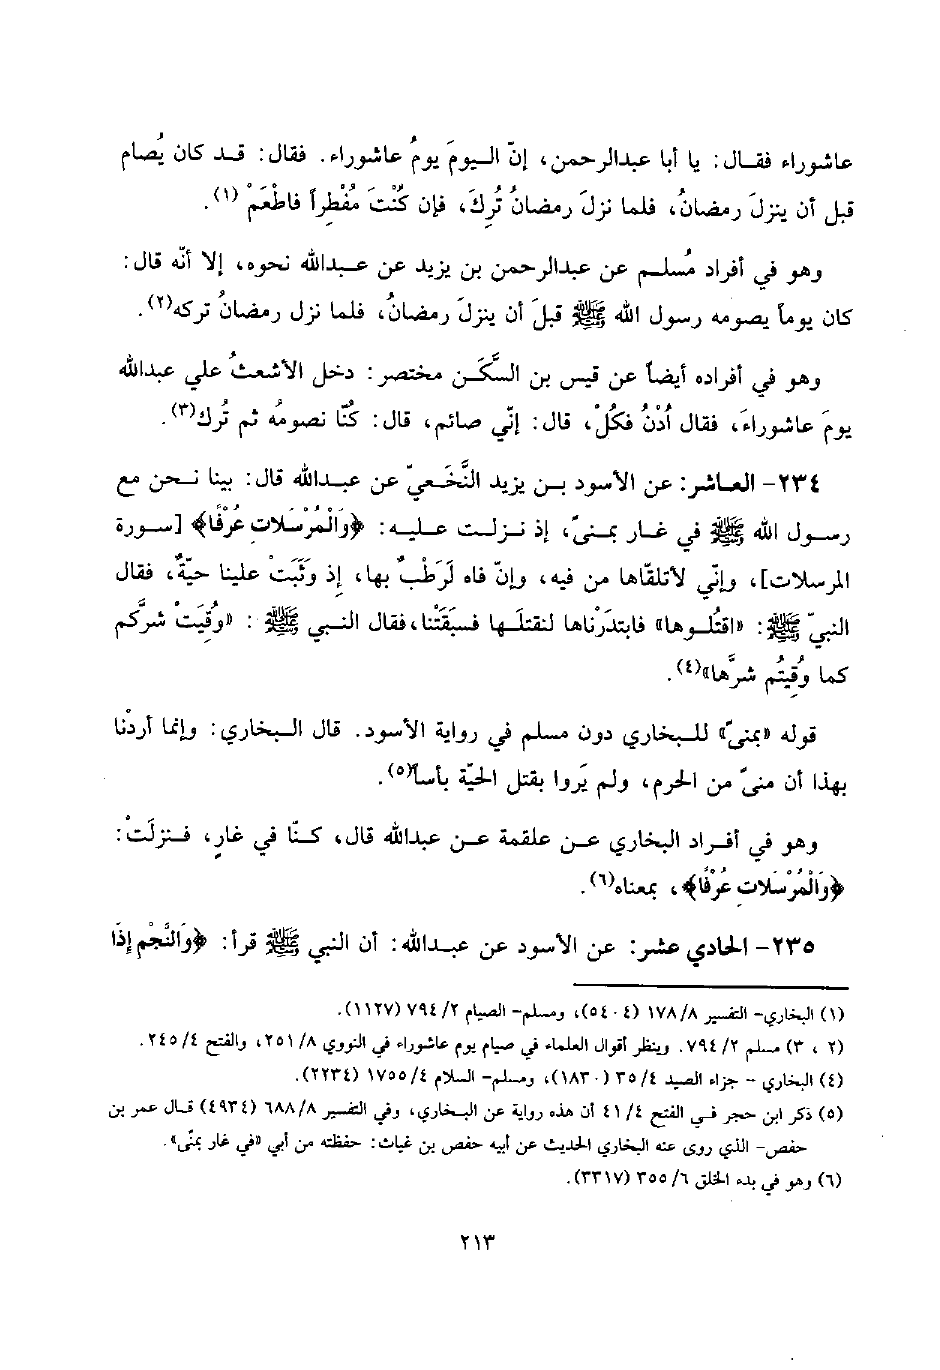 عاشوراء فقال: يا أبا عبدالرحمن، إنّ اليومَ يومُ عاشوراء. فقال: قد كان يُصام
قبل أن ينزلَ رمضانُ، فلما نزلَ رمضانُ تُرِكَ، فإن كُنْتَ مُفْطِراً فاطْعَمْ (١).
وهو في أفراد مُسلم عن عبدالرحمن بن يزيد عن عبدالله نحوه، إلا أنّه قال:
كان يوماً يصومه رسول الله ﷺ قبلَ أن ينزلَ رمضانُ، فلما نزل رمضانُ تركه(٢).
وهو في أفراده أيضاً عن قيس بن السَّكَن مختصر: دخل الأشعثُ علي عبدالله
يومَ عاشوراءَ، فقال اُدْنُ فكُلْ، قال: إنّي صائم، قال: كُنّا نصومهُ ثم تُرك(٣).
٢٣٤- العاشر: عن الأسود بن يزيد النَّخَعيّ عن عبدالله قال: بينا نحن مع
رسول الله ﷺ في غار بمنىً، إذ نزلت عليه: ﴿وَالْمُرْسَلَاتِ عُرْفًا﴾ [سورة
المرسلات]، وإنّي لأتلقّاها من فيه، وإنّ فاه لَرَطْبٌ بها، إذ وثَبَتْ علينا حيّةٌ، فقال
النبيّ ﷺ: «اقتُلوها» فابتدَرْناها لنقتلَها فسبَقَتْنا،فقال النبي ﷺ : «وُقِيَتْ شركُم
كما وُقِيتُم شرَّها»(٤).
قوله «بمنىً» للبخاري دون مسلم في رواية الأسود. قال البخاري: وإنما أردْنا
بهذا أن منىً من الحرم، ولم يَروا بقتل الحيّة بأساً(٥).
وهو في أفراد البخاري عن علقمة عن عبدالله قال، كنّا في غارٍ، فنزلَتْ:
﴿وَالْمُرْسَلَاتِ عُرْفًا﴾، بمعناه(٦).
٢٣٥- الحادي عشر: عن الأسود عن عبدالله: أن النبي ﷺ قرأ: ﴿وَالنَّجْمِ إِذَا
(١) البخاري- التفسير ٨/ ١٧٨ (٤٥٠٤)، ومسلم- الصيام ٢/ ٧٩٤ (١١٢٧).
(٢ ، ٣) مسلم ٢/ ٧٩٤. وينظر أقوال العلماء في صيام يوم عاشوراء في النووي ٨/ ٢٥١، والفتح ٤/ ٢٤٥.
(٤) البخاري - جزاء الصيد ٤/ ٣٥ (١٨٣٠)، ومسلم- السلام ٤/ ١٧٥٥ (٢٢٣٤).
(٥) ذكر ابن حجر في الفتح ٤/ ٤١ أن هذه رواية عن البخاري، وفي التفسير ٨/ ٦٨٨ (٤٩٣٤) قال عمر بن
حفص- الذي روى عنه البخاري الحديث عن أبيه حفص بن غياث: حفظته من أبي «في غار بمنّى».
(٦) وهو في بدء الخلق ٦/ ٣٥٥ (٣٣١٧).
٢١٣